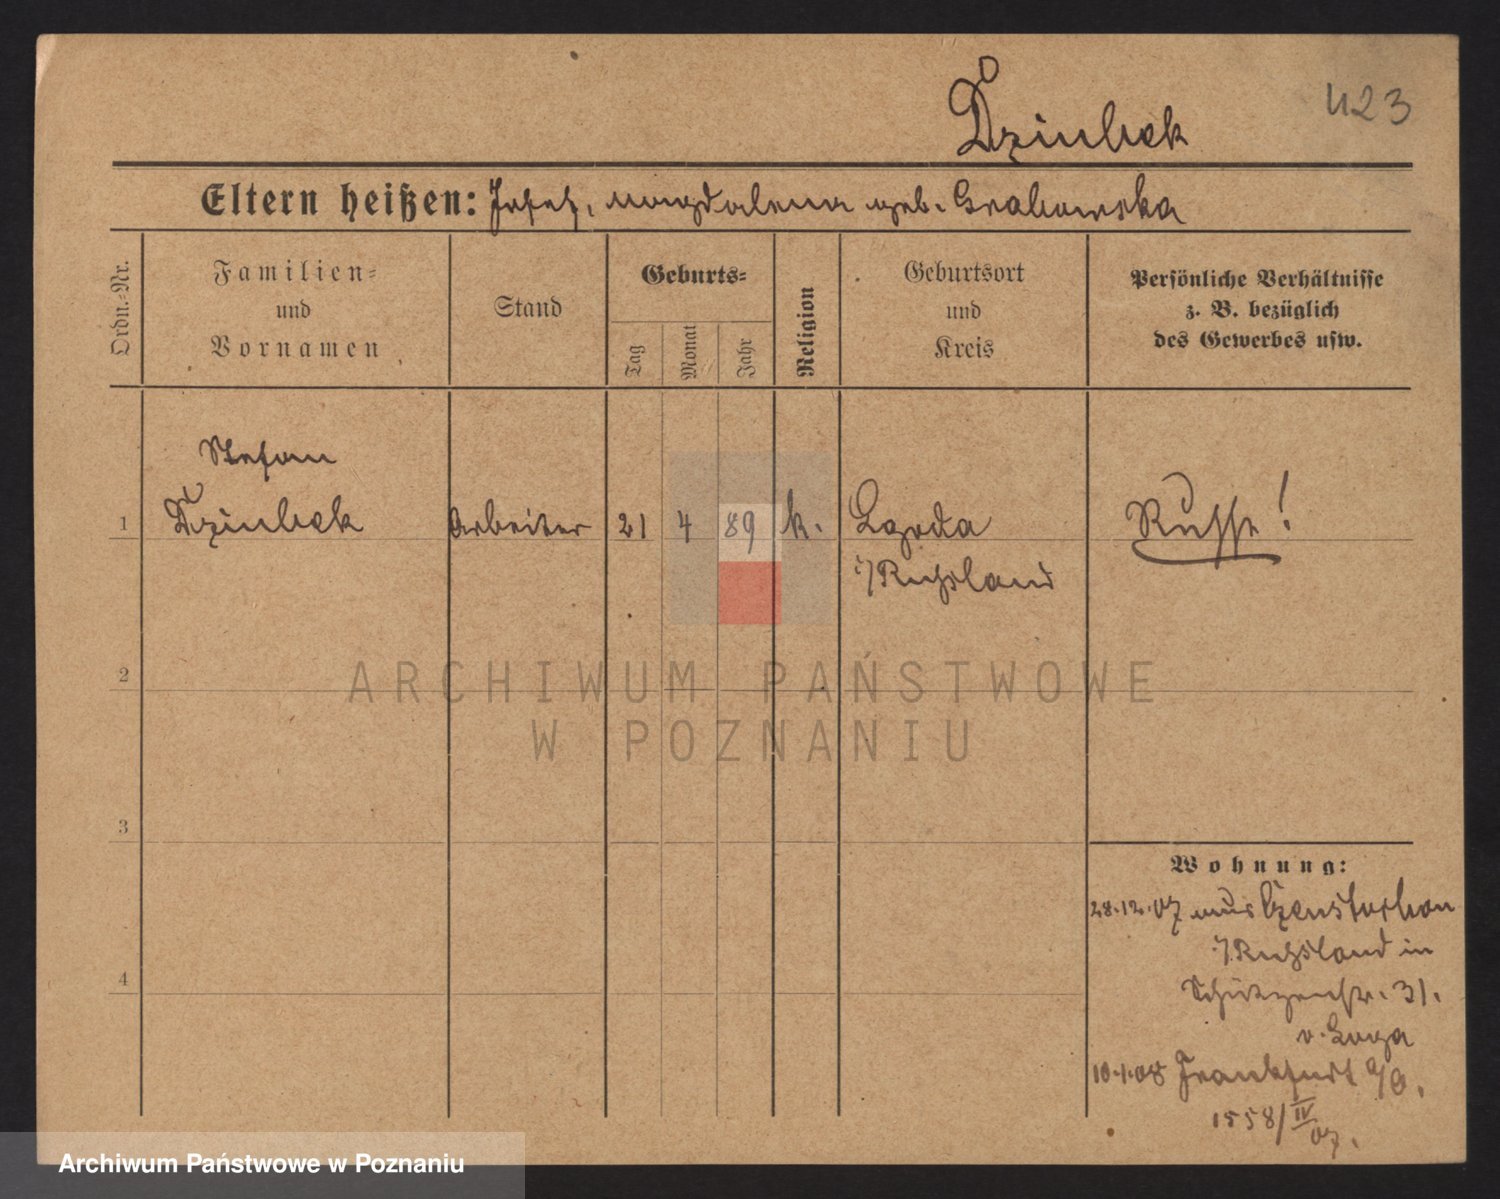 423
Dziubek
Eltern heißen: Josef, Magdalena geb. Grabowska
Ordn.-Nr.
Familien-
und
Vornamen
Stand
Geburts-
Tag
Monat
Jahr
Religion
Geburtsort
und
Kreis
Persönliche Verhältnisse
z. B. bezüglich
des Gewerbes usw.
Stefan
1 Dziubek Arbeiter 21 4 89 k. Russe!
i/Russland
2
ARCHIWUM PAŃSTWOWE
W POZNANIU
3
Wohnung:
28.12.07 aus Czenstochau
i/Russland in
Schützenstr. 31.
v. Loga
4
10.1.08 Frankfurt a/O.
1558/IV
07.
Archiwum Państwowe w Poznaniu